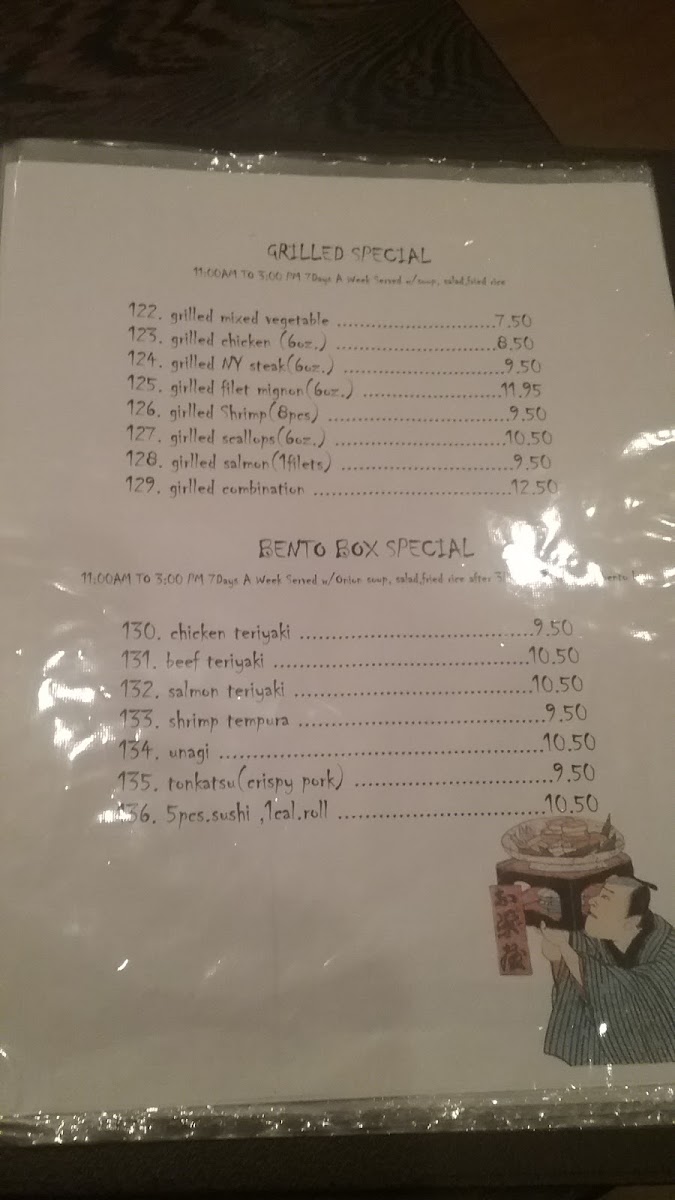 GRILLED SPECIAL
11:00AM TO 3:00 PM 7Days A Week Served w/soup, salad,fried rice
122. grilled mixed vegetable ................................7.50
123. grilled chicken (6oz.) ................................8.50
124. grilled NY steak(6oz.) ...............................9.50
125. girlled filet mignon(6oz.) ...........................11.95
126. girlled Shrimp(8pcs) ....................................9.50
127. girlled scallops(6oz.) .................................10.50
128. girlled salmon(1filets) .................................9.50
129. girlled combination .......................................12.50
BENTO BOX SPECIAL
11:00AM TO 3:00 PM 7Days A Week Served w/Onion soup, salad,fried rice after
130. chicken teriyaki ........................................9.50
131. beef teriyaki ............................................10.50
132. salmon teriyaki .........................................10.50
133. shrimp tempura ..........................................9.50
134. unagi .......................................................10.50
135. tonkatsu(crispy pork) .................................9.50
136. 5pcs.sushi ,1cal.roll ...................................10.50